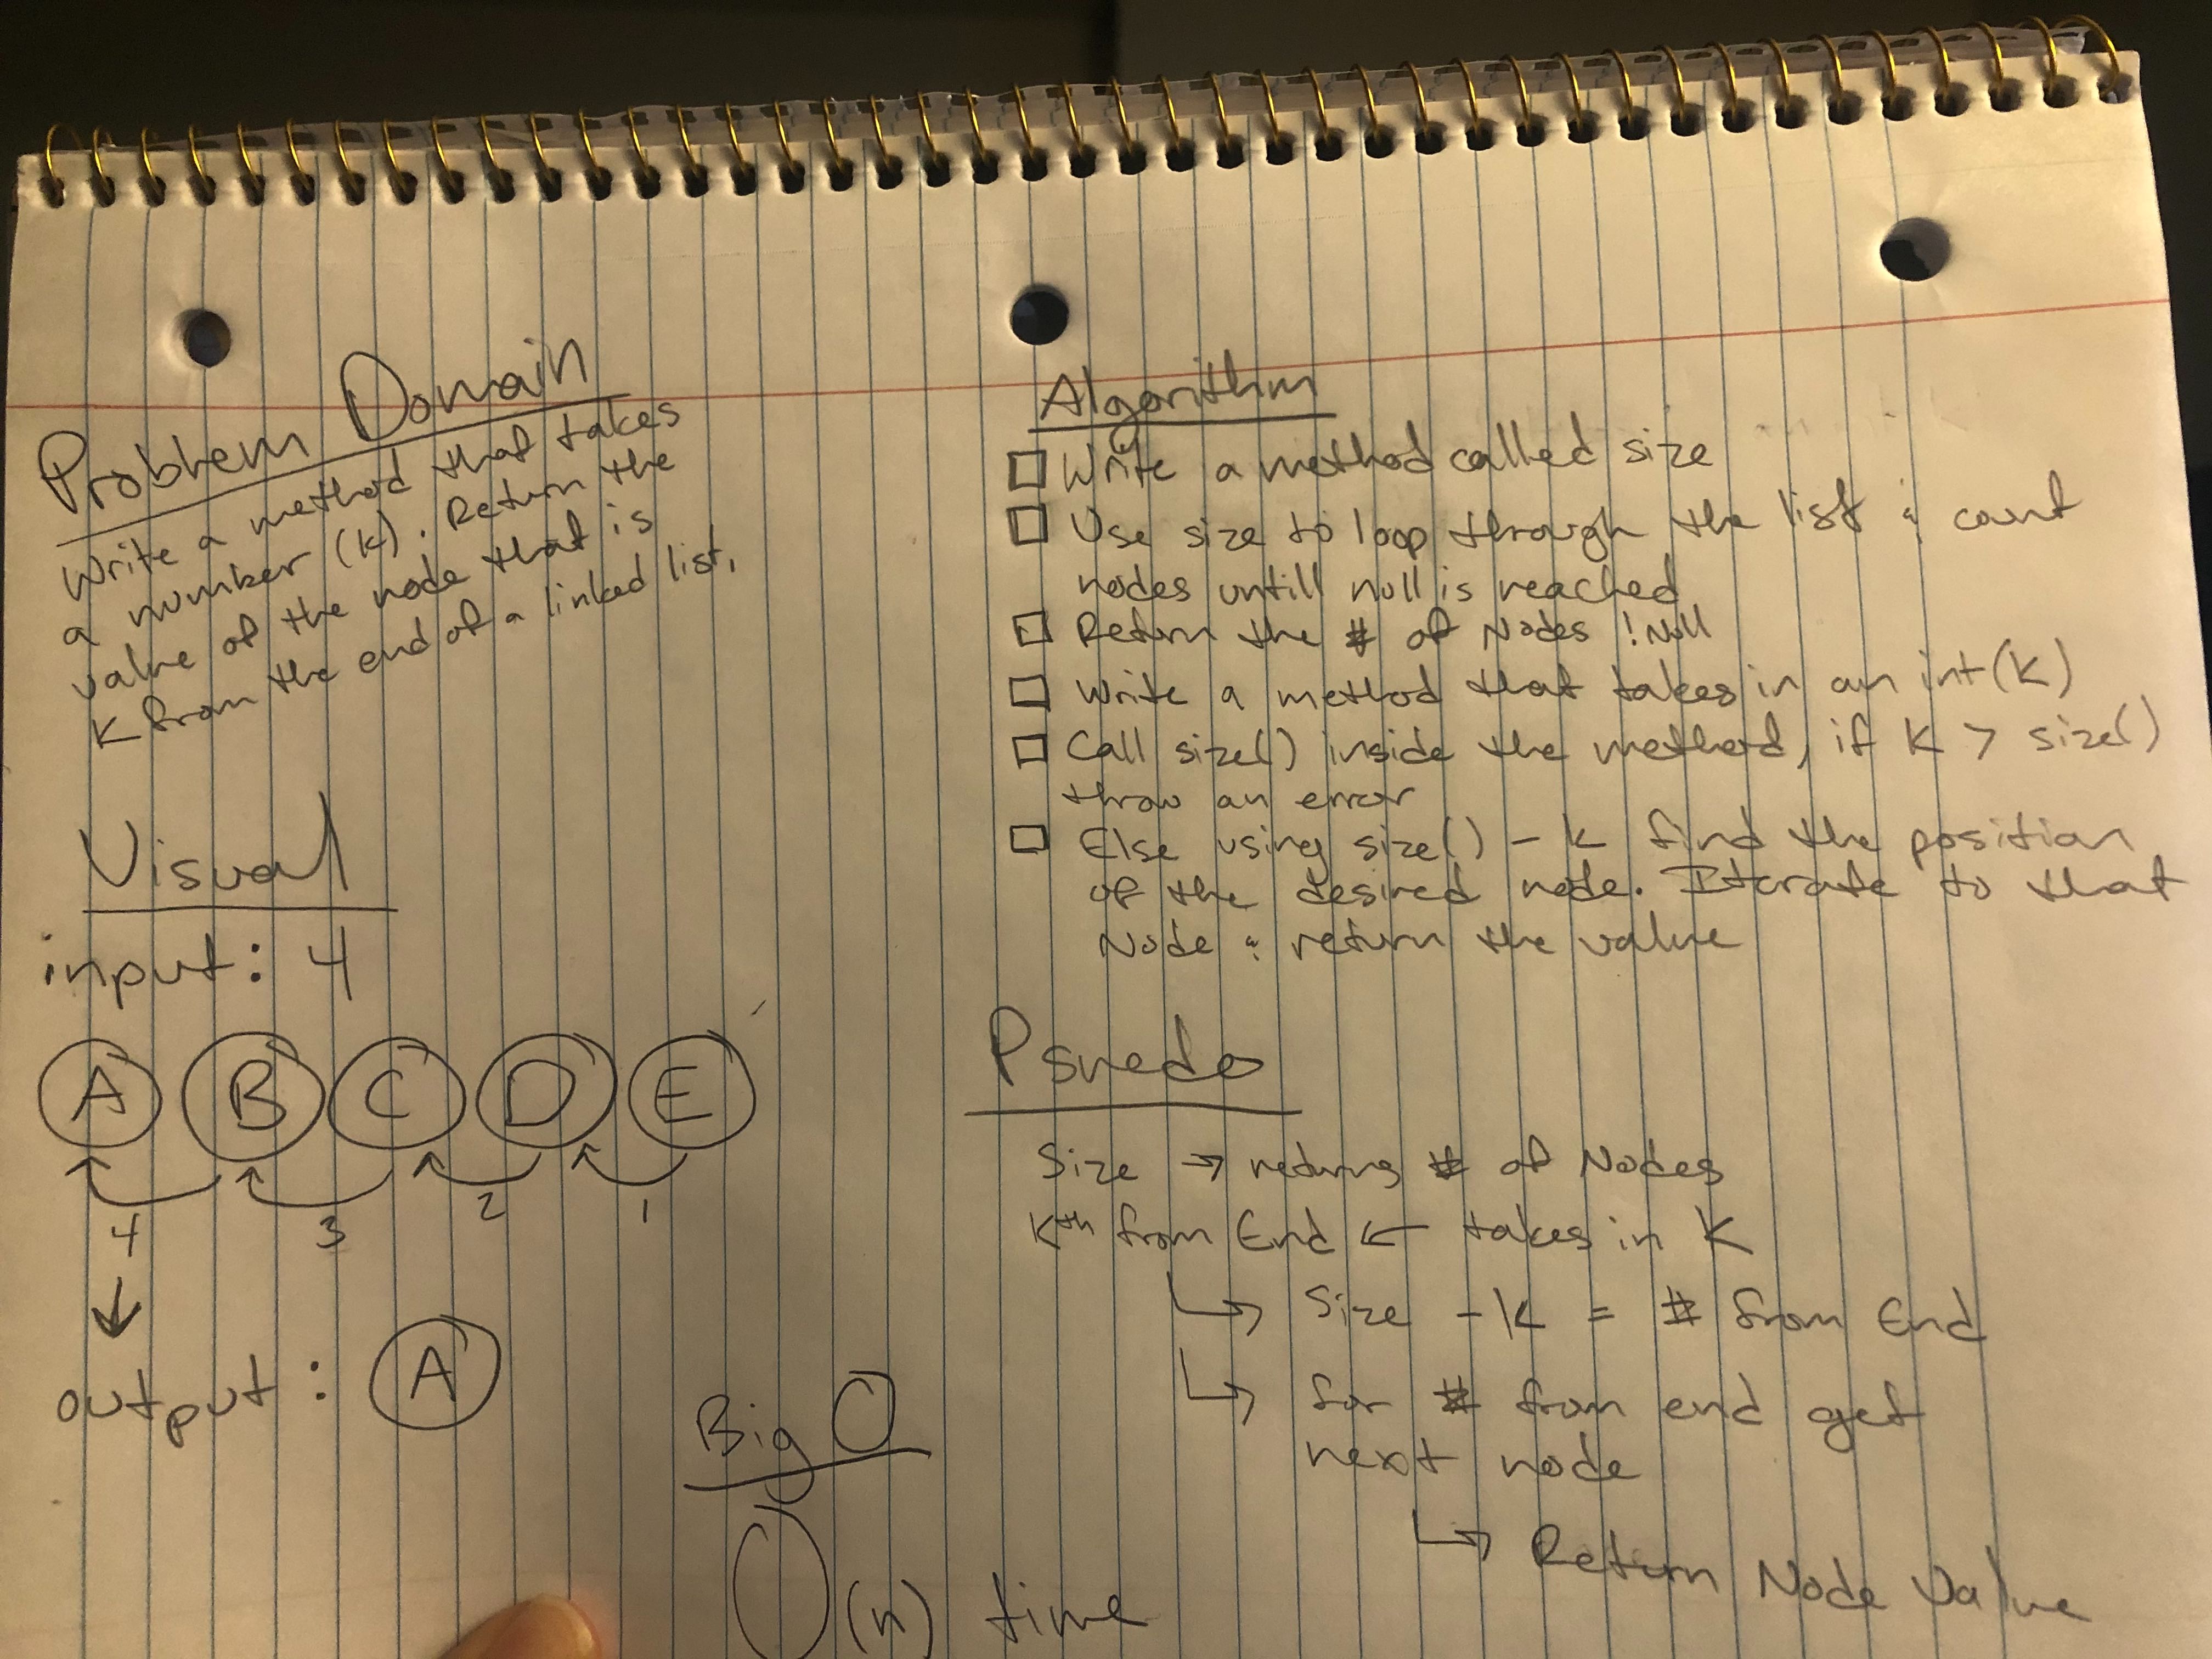 Problem Domain
Write a method that takes
a number (k). Return the
value of the node that is
K from the end of a linked list.
Visual
input: 4
A B C D E
4 3 2 1
output: A
Big O
O(n) time
Algorithm
Write a method called size
Use size to loop through the list & count
nodes untill null is reached
Return the # of Nodes !Null
Write a method that takes in an int(K)
Call size() inside the method, if K > size()
throw an error
Else using size() - k find the position
of the desired node. Iterate to that
Node & return the value
Psuedo
Size → returns # of Nodes
Kth from End ← takes in K
↳ Size - k = # from End
↳ for # from end get
next node
↳ Return Node Value